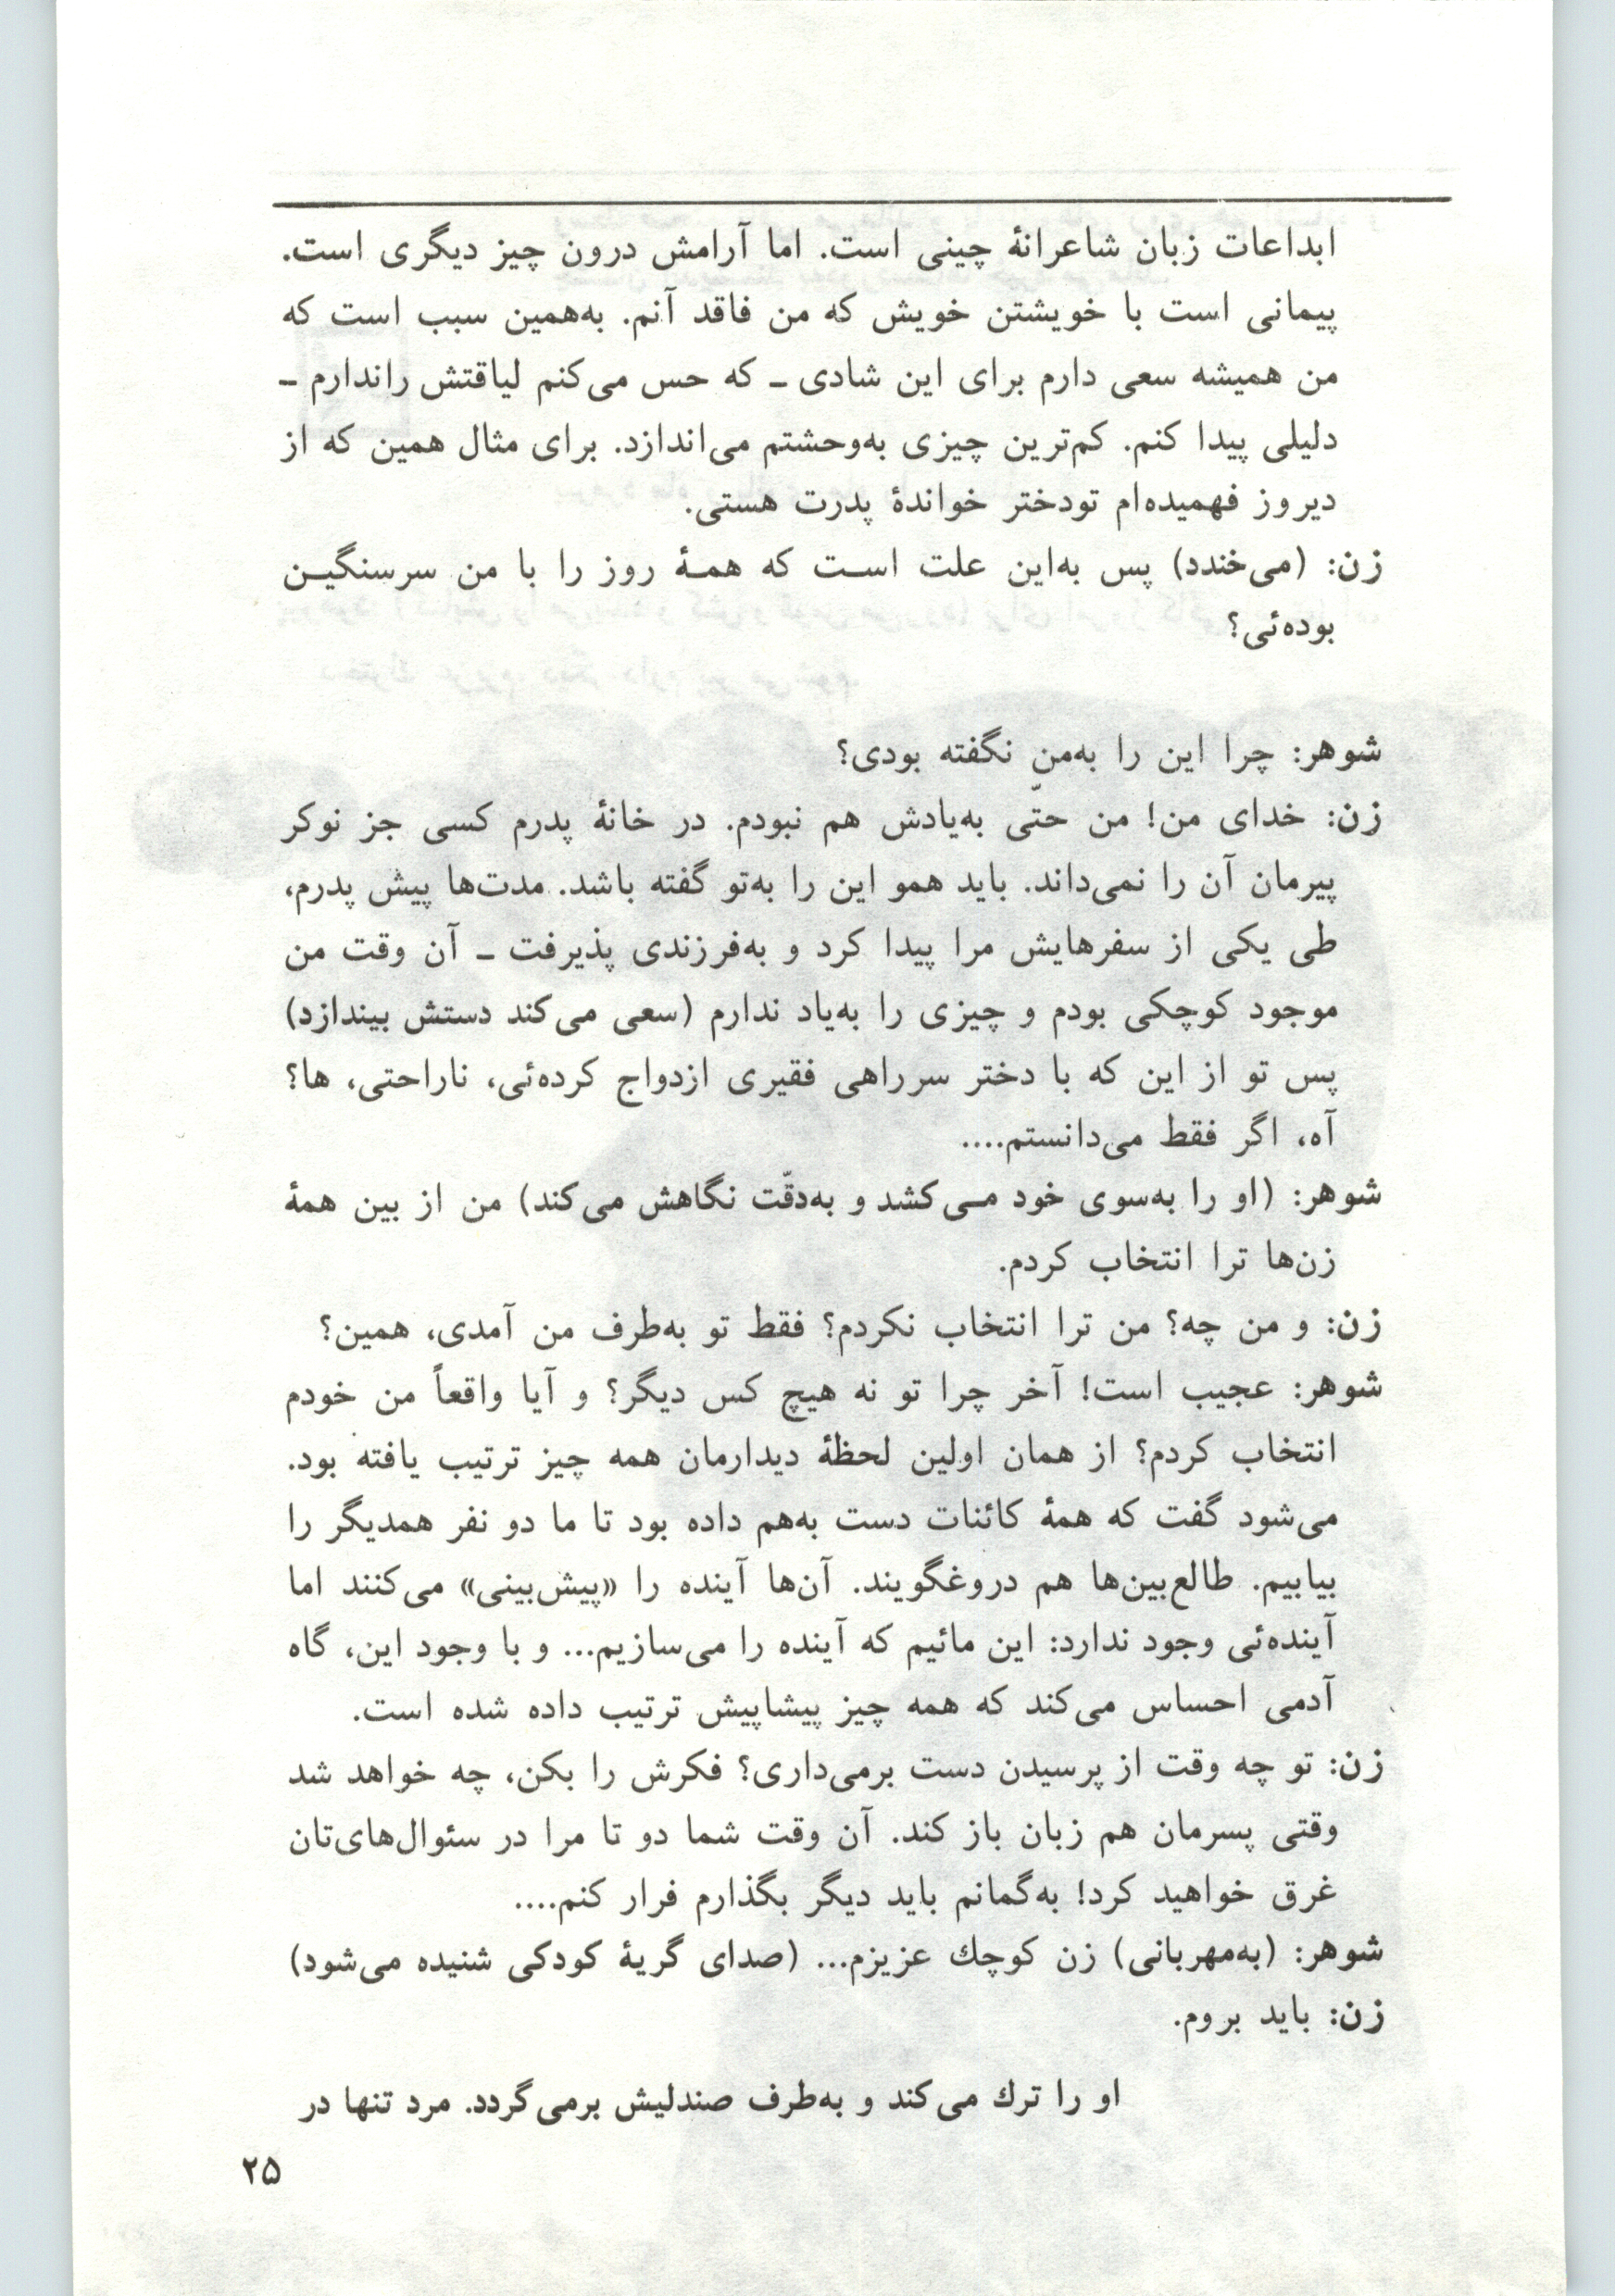 ابداعات زبان شاعرانهٔ چینی است. اما آرامش درون چیز دیگری است.
پیمانی است با خویشتن خویش که من فاقد آنم. به‌همین سبب است که
من همیشه سعی دارم برای این شادی ـ که حس می‌کنم لیاقتش راندارم ـ
دلیلی پیدا کنم. کم‌ترین چیزی به‌وحشتم می‌اندازد. برای مثال همین که از
دیروز فهمیده‌ام تودختر خواندهٔ پدرت هستی.
زن: (می‌خندد) پس به‌این علت است که همهٔ روز را با من سرسنگین
بوده‌ئی؟
شوهر: چرا این را به‌من نگفته بودی؟
زن: خدای من! من حتّی به‌یادش هم نبودم. در خانهٔ پدرم کسی جز نوکر
پیرمان آن را نمی‌داند. باید همو این را به‌تو گفته باشد. مدت‌ها پیش پدرم،
طی یکی از سفرهایش مرا پیدا کرد و به‌فرزندی پذیرفت ـ آن وقت من
موجود کوچکی بودم و چیزی را به‌یاد ندارم (سعی می‌کند دستش بیندازد)
پس تو از این که با دختر سرراهی فقیری ازدواج کرده‌ئی، ناراحتی، ها؟
آه، اگر فقط می‌دانستم....
شوهر: (او را به‌سوی خود مـی‌کشد و به‌دقّت نگاهش می‌کند) من از بین همهٔ
زن‌ها ترا انتخاب کردم.
زن: و من چه؟ من ترا انتخاب نکردم؟ فقط تو به‌طرف من آمدی، همین؟
شوهر: عجیب است! آخر چرا تو نه هیچ کس دیگر؟ و آیا واقعاً من خودم
انتخاب کردم؟ از همان اولین لحظهٔ دیدارمان همه چیز ترتیب یافته بود.
می‌شود گفت که همهٔ کائنات دست به‌هم داده بود تا ما دو نفر همدیگر را
بیابیم. طالع‌بین‌ها هم دروغگویند. آن‌ها آینده را «پیش‌بینی» می‌کنند اما
آینده‌ئی وجود ندارد: این مائیم که آینده را می‌سازیم... و با وجود این، گاه
آدمی احساس می‌کند که همه چیز پیشاپیش ترتیب داده شده است.
زن: تو چه وقت از پرسیدن دست برمی‌داری؟ فکرش را بکن، چه خواهد شد
وقتی پسرمان هم زبان باز کند. آن وقت شما دو تا مرا در سئوال‌های‌تان
غرق خواهید کرد! به‌گمانم باید دیگر بگذارم فرار کنم....
شوهر: (به‌مهربانی) زن کوچك عزیزم... (صدای گریهٔ کودکی شنیده می‌شود)
زن: باید بروم.
او را ترك می‌کند و به‌طرف صندلیش برمی‌گردد. مرد تنها در
۲۵